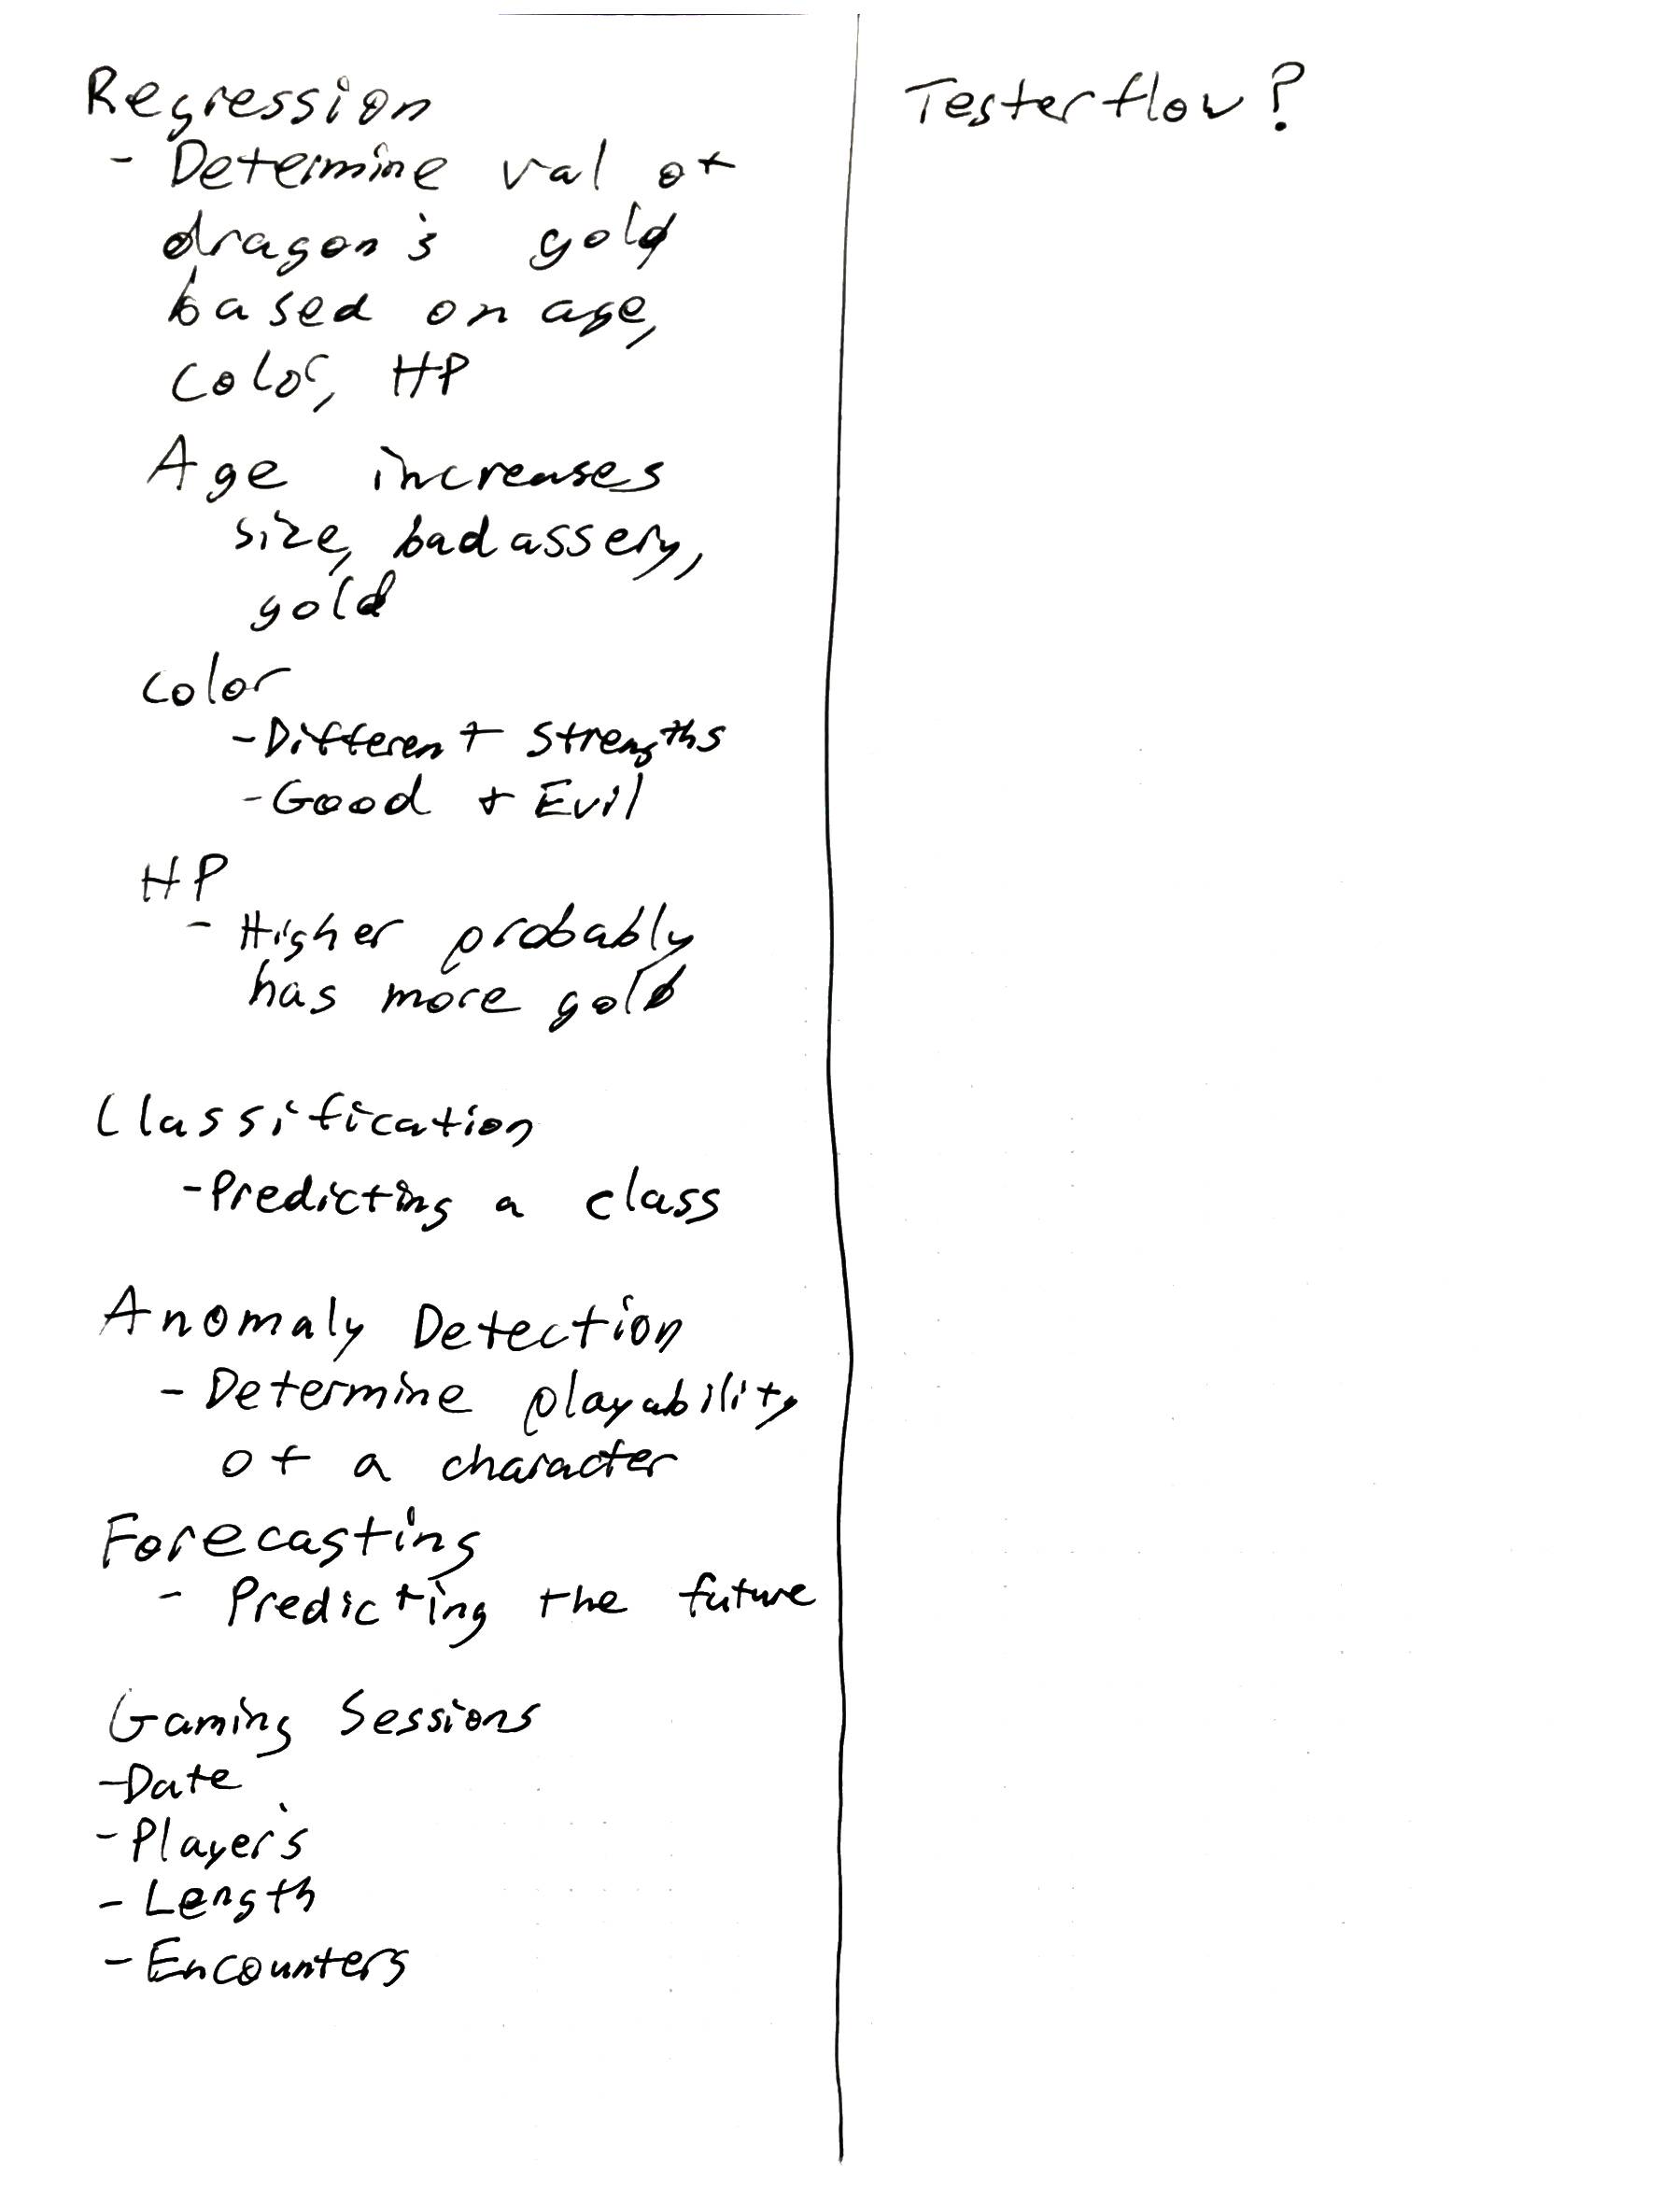 Regression
- Determine val of
dragon's gold
based on age,
color, HP
Age increases
size, badassery,
gold
color
- Different strengths
- Good + Evil
HP
- Higher probably
has more gold
Classification
- Predicting a class
Anomaly Detection
- Determine playability
of a character
Forecasting
- Predicting the future
Gaming Sessions
- Date
- Players
- Length
- Encounters
Testerflow?